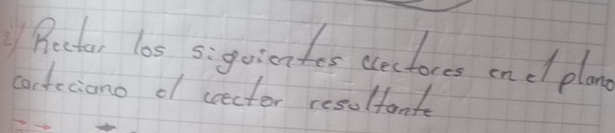 2) Rectar los siguientes vectores en el plano
carteciano el vector resultante